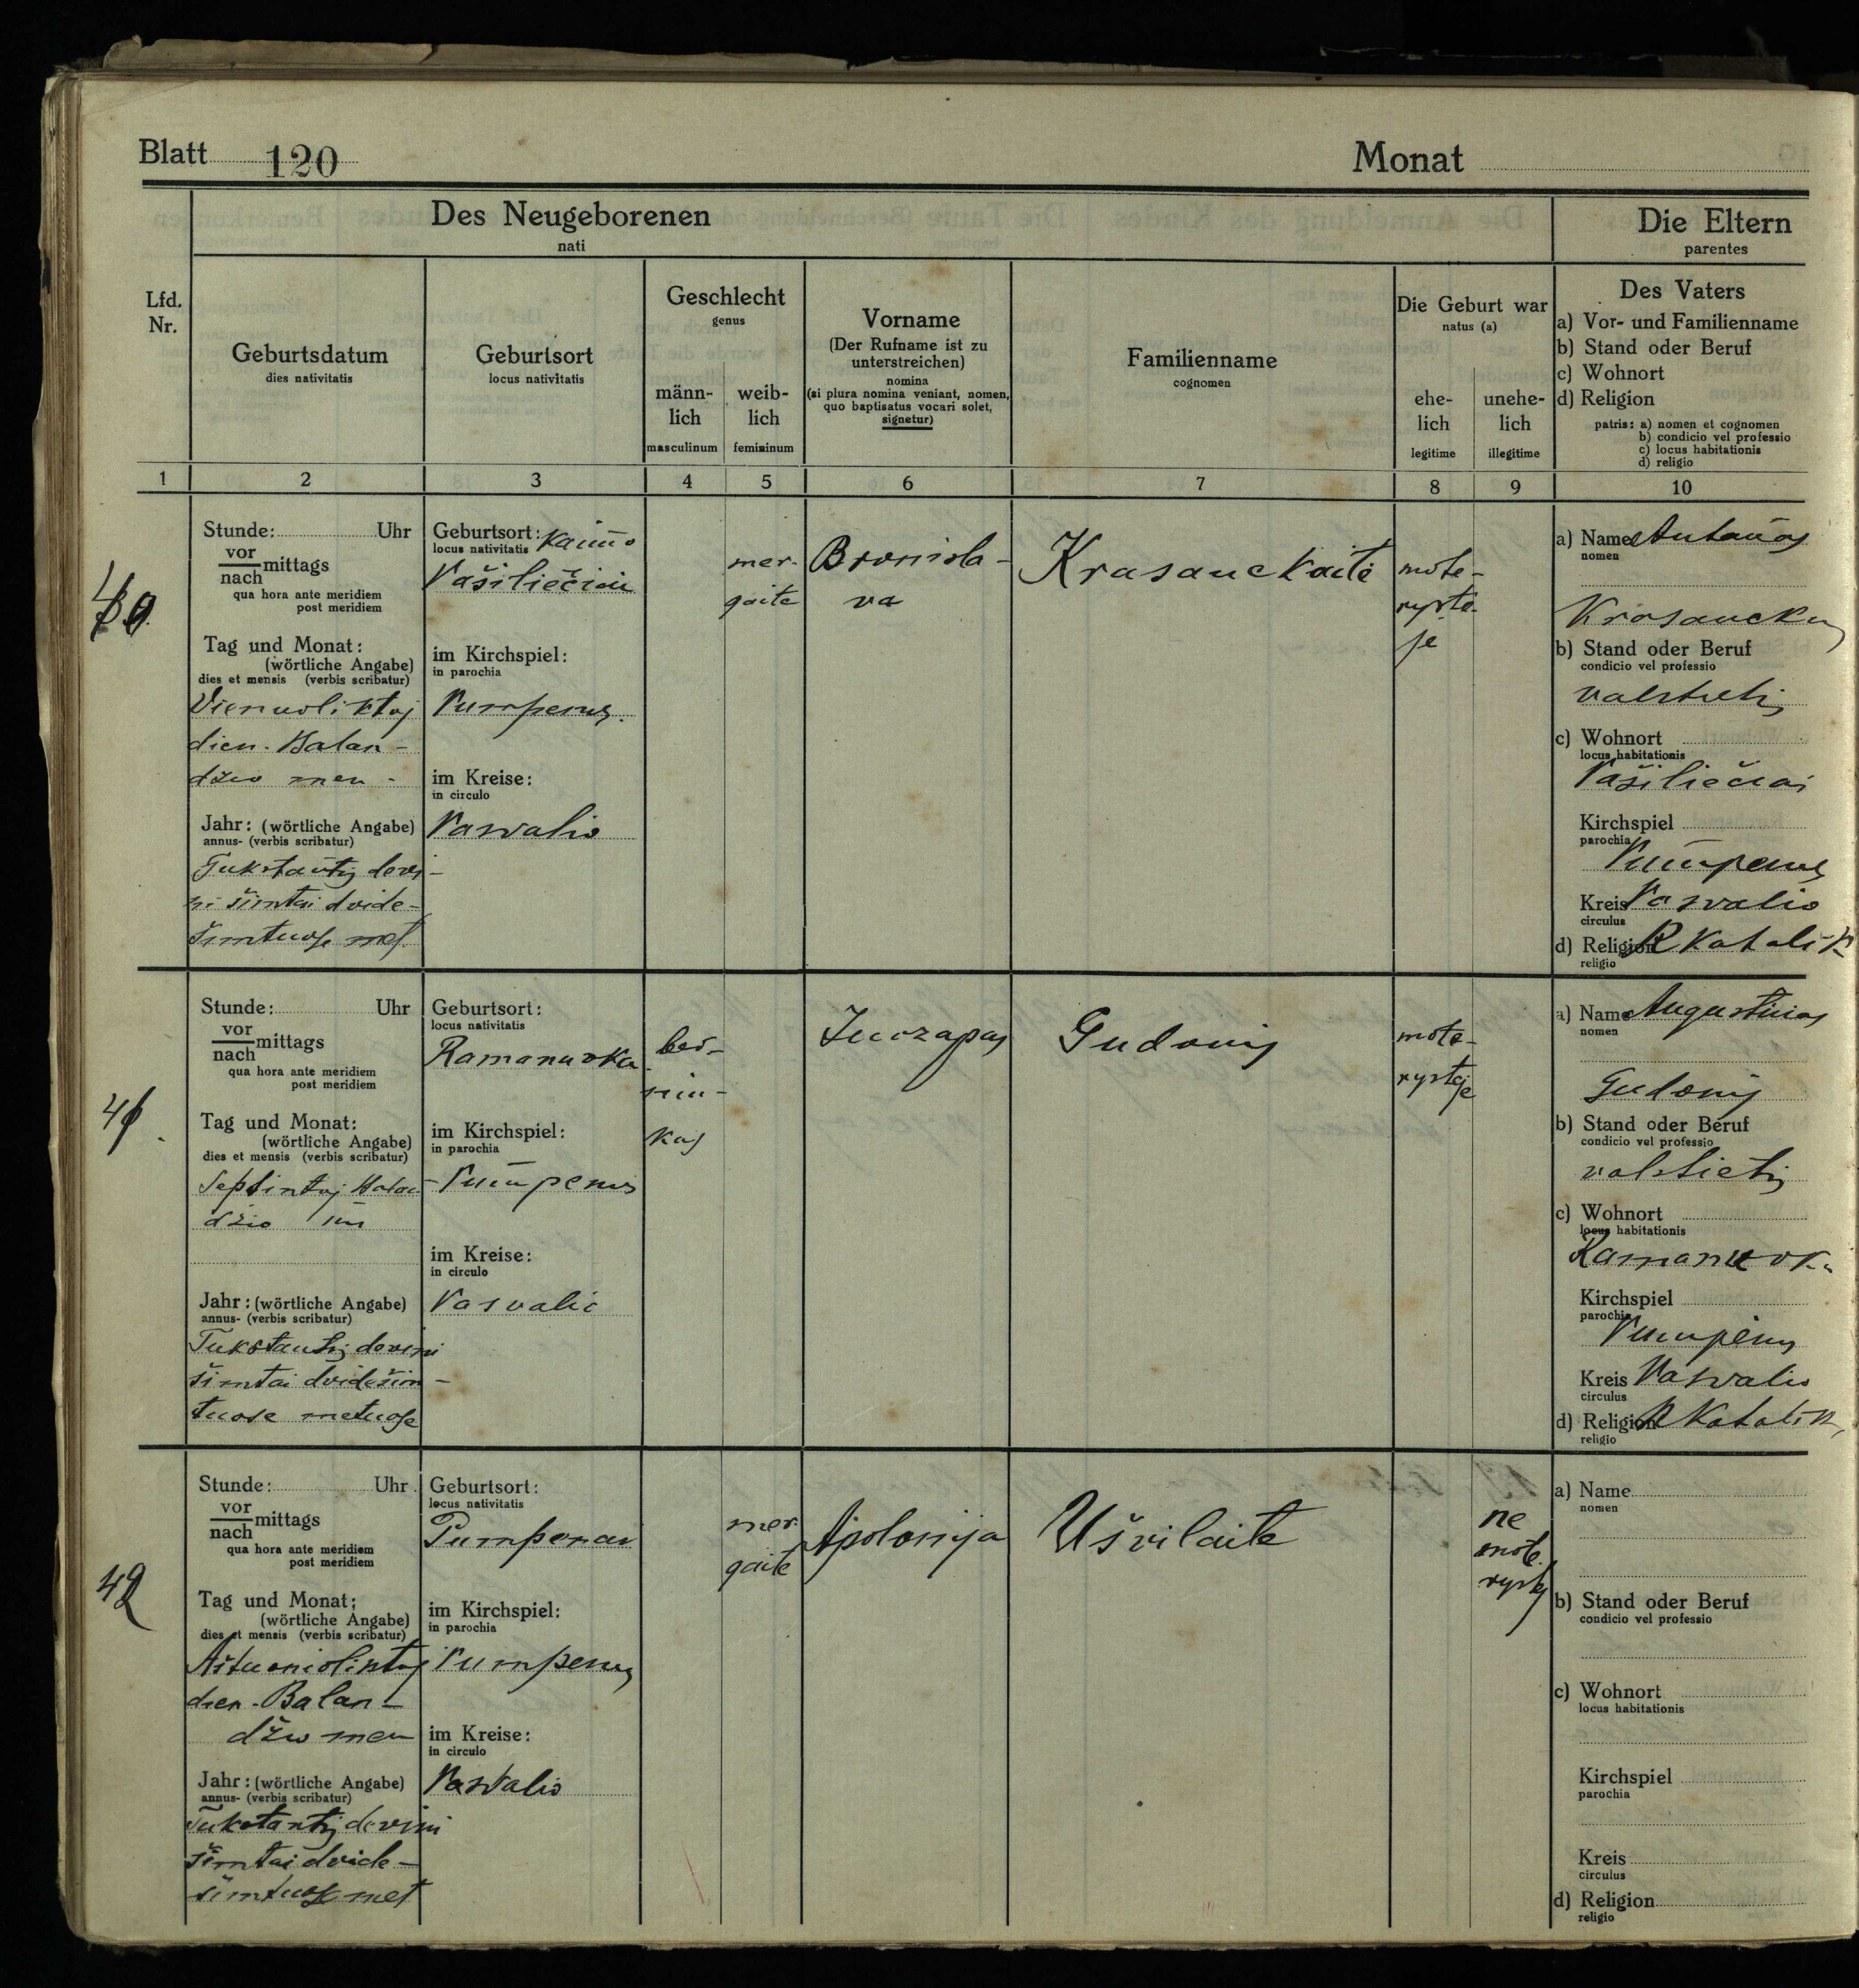 Blatt 120 Monat
Des Neugeborenen
nati
Die Eltern
parentes
Lfd.
Nr.
Geburtsdatum
dies nativitatis
Geburtsort
locus nativitatis
Geschlecht
genus
männ-
lich
masculinum
weib-
lich
femininum
Vorname
(Der Rufname ist zu
unterstreichen)
nomina
(si plura nomina veniant, nomen,
quo baptisatus vocari solet,
signetur)
Familienname
cognomen
Die Geburt war
natus (a)
ehe-
lich
legitime
unehe-
lich
illegitime
Des Vaters
a) Vor- und Familienname
b) Stand oder Beruf
c) Wohnort
d) Religion
patris: a) nomen et cognomen
b) condicio vel professio
c) locus habitationis
d) religio
1 2 3 4 5 6 7 8 9 10
40.
Stunde: Uhr
vor
nach mittags
qua hora ante meridiem
post meridiem
Tag und Monat:
(wörtliche Angabe)
dies et mensis (verbis scribatur)
Vienuoliktoj
dien. Balan-
džio men.
Jahr: (wörtliche Angabe)
annus- (verbis scribatur)
Tukstantis devi-
ni šimtai dvide-
šimtuose met.
Geburtsort: Kaimo
locus nativitatis
Pašiliečiai
im Kirchspiel:
in parochia
Pumpenų
im Kreise:
in circulo
Pasvalio
mer-
gaite
Bronisla-
va
Krasauckaitė
mote-
rystė-
je
a) Name Antanas
nomen
Krasauckas
b) Stand oder Beruf
condicio vel professio
valstietis
c) Wohnort
locus habitationis
Pašiliečiai
Kirchspiel
parochia
Pumpenų
Kreis Pasvalio
circulus
d) Religion R Katalik
religio
41.
Stunde: Uhr
vor
nach mittags
qua hora ante meridiem
post meridiem
Tag und Monat:
(wörtliche Angabe)
dies et mensis (verbis scribatur)
Septintoj Balan-
džio m
Jahr: (wörtliche Angabe)
annus- (verbis scribatur)
Tukstantis devini
šimtai dvidešim-
tuose metuose
Geburtsort:
locus nativitatis
Ramanavka
im Kirchspiel:
in parochia
Pumpenų
im Kreise:
in circulo
Pasvalio
ber-
nin-
kas
Juozapas
Gudonis
mote-
rystėje
a) Name Augustinas
nomen
Gudonis
b) Stand oder Beruf
condicio vel professio
valstietis
c) Wohnort
locus habitationis
Ramanavka
Kirchspiel
parochia
Pumpenų
Kreis Pasvalio
circulus
d) Religion R Katalik
religio
42
Stunde: Uhr
vor
nach mittags
qua hora ante meridiem
post meridiem
Tag und Monat:
(wörtliche Angabe)
dies et mensis (verbis scribatur)
Aštuonioliktoj
dien. Balan-
džio men
Jahr: (wörtliche Angabe)
annus- (verbis scribatur)
Tukstantis devini
šimtai dvide-
šimtuose met
Geburtsort:
locus nativitatis
Pumpenai
im Kirchspiel:
in parochia
Pumpenų
im Kreise:
in circulo
Pasvalio
mer-
gaitė
Apolonija
Ušvilaite
ne
mote-
rystėj
a) Name
nomen
b) Stand oder Beruf
condicio vel professio
c) Wohnort
locus habitationis
Kirchspiel
parochia
Kreis
circulus
d) Religion
religio